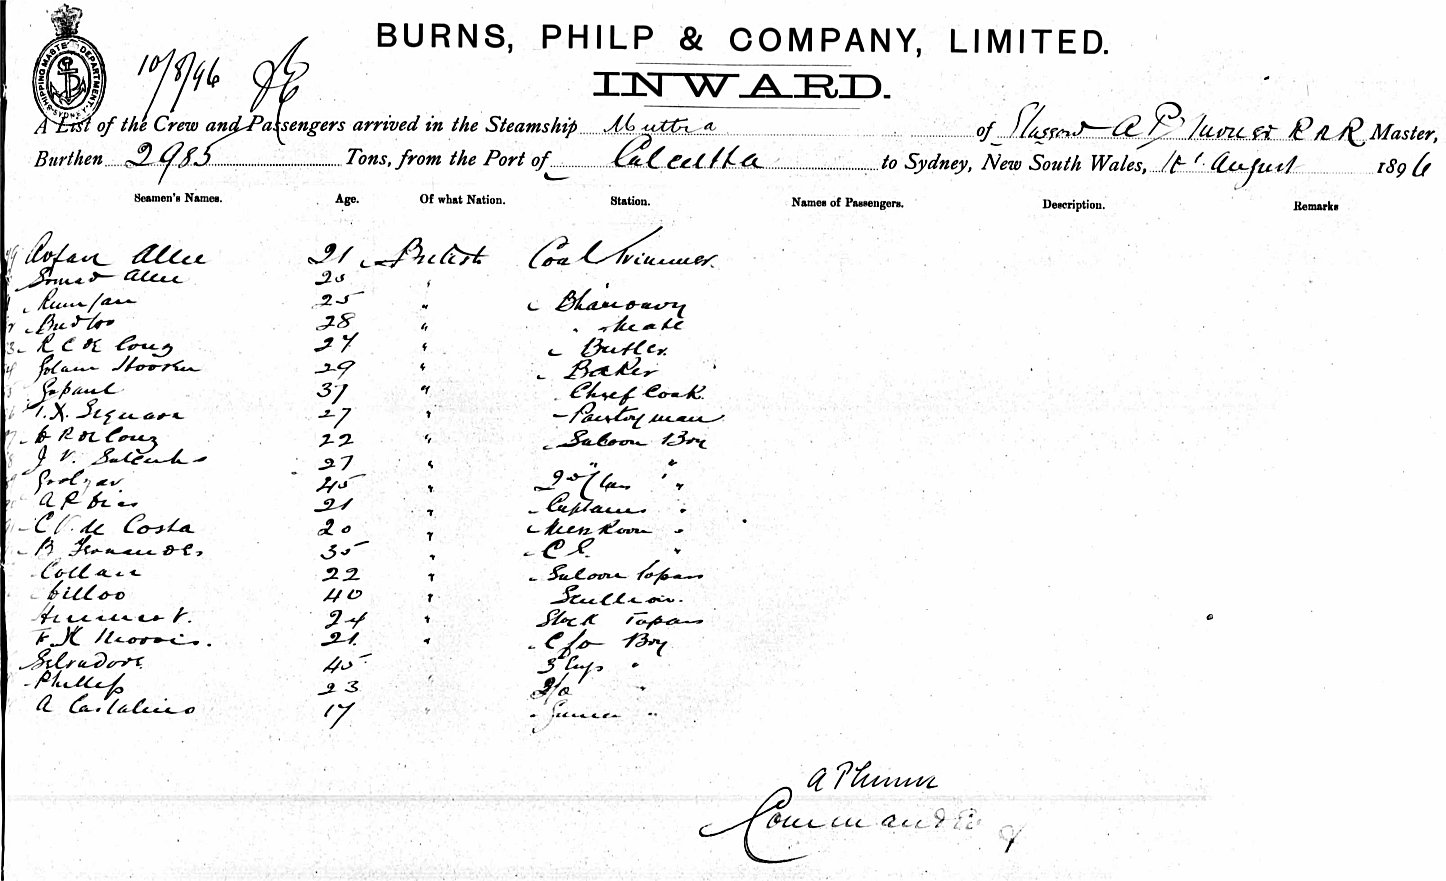 BURNS, PHILP & COMPANY, LIMITED.
INWARD.
SHIPPING MASTER'S DEPARTMENT SYDNEY
10/8/96
A List of the Crew and Passengers arrived in the Steamship Muttra of Glasgow A P Turner R N R Master,
Burthen 2985 Tons, from the Port of Calcutta to Sydney, New South Wales, August 1896
Seamen's Names. Age. Of what Nation. Station. Names of Passengers. Description. Remarks
Allee 21 British Coal Trimmer.
Allee 25 "
Rumjan 25 " Bhandary
28 " " Mate
R C De Couz 27 " Butler.
Golam Hoosen 29 " Baker
Gopaul 37 " Chief Cook
T. X. Sequara 27 " Pantryman
22 " Saloon Boy
J V. 27 " " "
45 " 2nd Class " "
A R Dias 21 " Captains "
C V. de Costa 20 " Mess Room "
B Fernandes. 35 " C E. "
22 " Saloon Topas
40 " Scullion.
24 " Topas
F X Morris. 21 " C/o Boy
Salvadore 45 "
Phillip 23 2/o "
A Castalino 17 " Gunner "
A P Turner
Commander